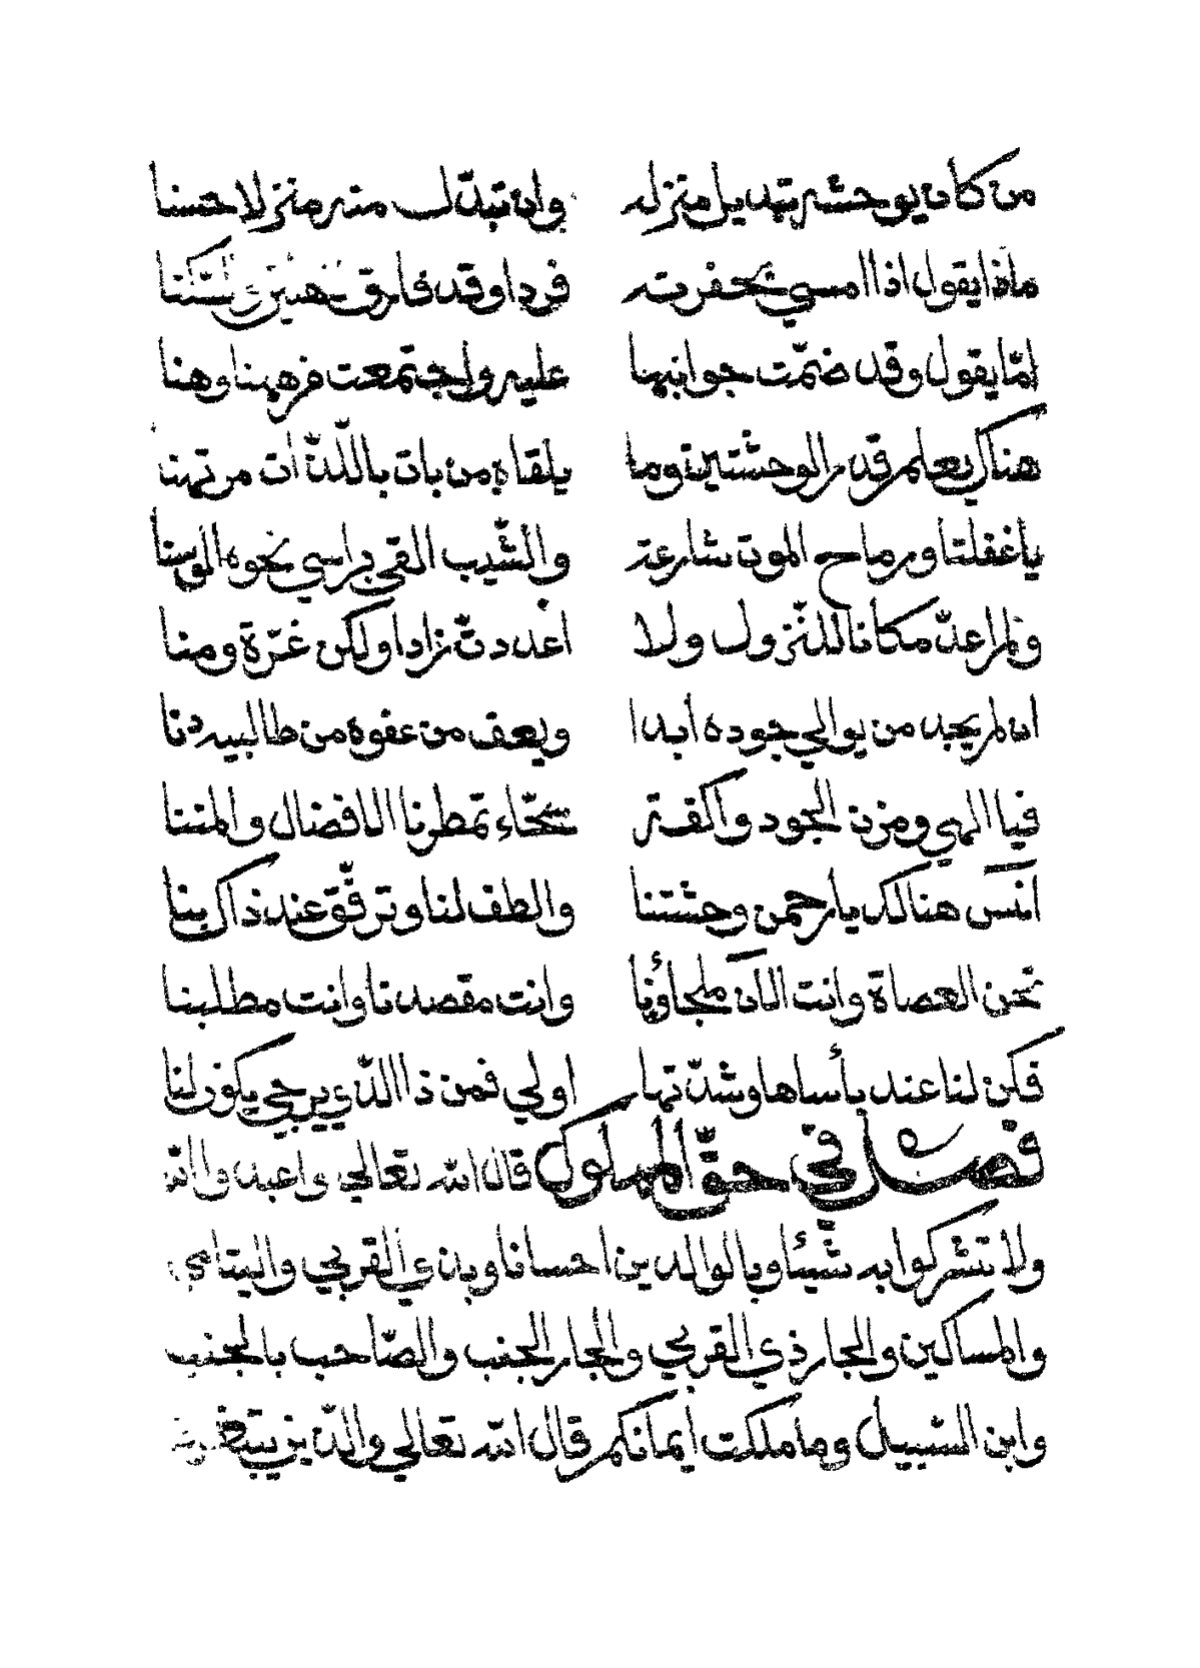 من كان يوحشه تبديل منزله وان تبدل منه منزلا حسنا
ماذا يقول اذا امسي بحفرته فردا وقد فارق
امّا يقول وقد ضمّت جوانبها عليه واجتمعت من ههنا وهنا
هناك يعلم قدر الوحشتين وما يلقاه من بات باللّذّات مرتهنا
ياغفلتا ورماح الموت شارعة والشّيب القي براسي نحوه الرسنا
ولم اعدّ مكانا للنّزول ولا اعددتّ زادا ولكن غرّة ومنا
ان لم يجد من يوالي جوده ابدا ويعف من عفوه من طالبيه دنا
فيا الهي ومزن الجود واكفة سحّاء تمطرنا الافضال والمننا
آنس هنالك يارحمن وحشتنا والطف لنا وترفّق عند ذاك بنا
نحن العصاة وانت الآن ملجاؤنا وانت مقصدنا وانت مطلبنا
فكن لنا عند بأساها وشدّتها اولي فمن ذا الّذي يرجي يكون لنا
فصل في حقّ المملوك قال الله تعالي واعبدوا الله
ولا تشركوا به شيئا وبالوالدين احسانا وبذي القربي واليتامي
والمساكين والجار ذي القربي والجار الجنب والصّاحب بالجنب
وابن السّبيل وما ملكت ايمانكم قال الله تعالي والّذين يبتغون